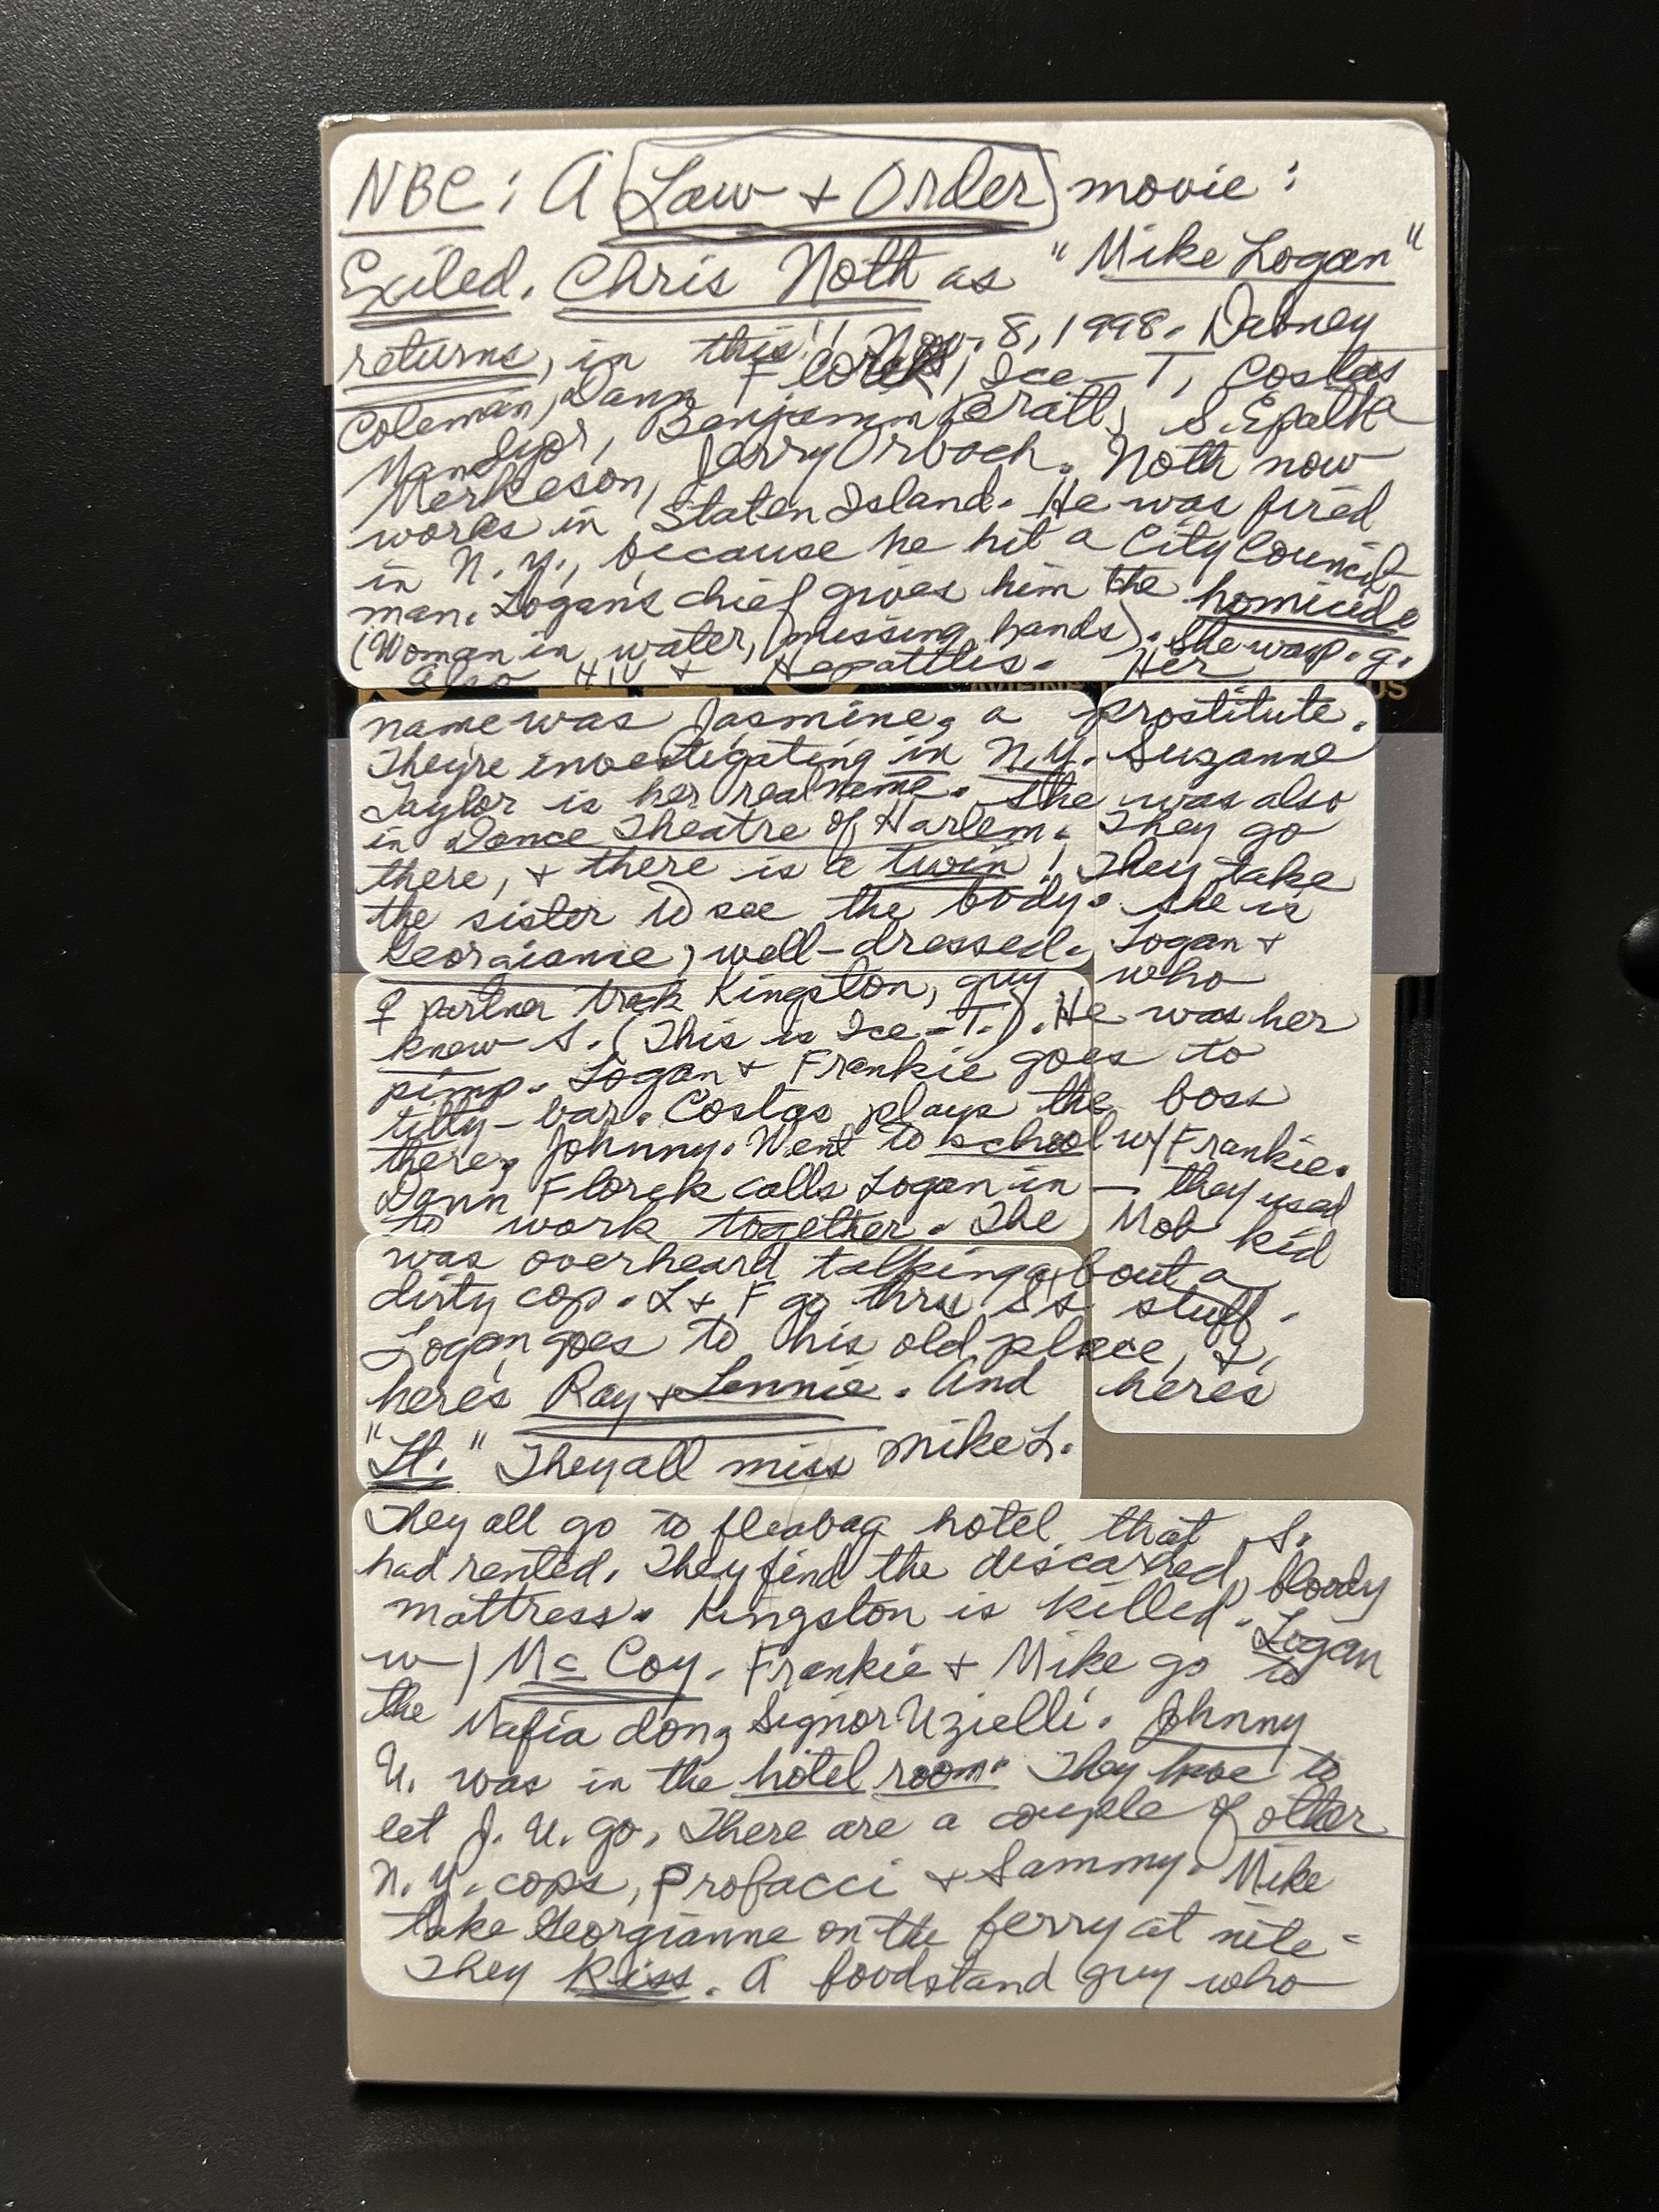 NBC: A Law + Order movie:
Exiled. Chris Noth as "Mike Logan"
returns, in this!! Nov. 8, 1998. Dabney
Coleman, Dann Florek, Ice-T, Costas
Mandylor, Benjamin Bratt, S. Epatha
Merkeson, Jerry Orbach. Noth now
works in Staten Island. He was fired
in N.Y., because he hit a City Council
man. Logan's chief gives him the homicide
(Woman in water, missing hands). She was p.g.
also HIV + Hepatitis. Her
name was Jasmine, a prostitute.
They're investigating in N.Y. Suzanne
Taylor is her real name. She was also
in Dance Theatre of Harlem. They go
there, + there is a twin! They take
the sister to see the body. She is
Georgianne, well-dressed. Logan +
♀ partner track Kingston, guy who
knew S. (This is Ice-T.). He was her
pimp. Logan + Frankie goes to
titty-bar. Costas plays the boss
there, Johnny. Went to school w/ Frankie.
Dann Florek calls Logan in — they used
to work together. The Mob kid
was overheard talking about a
dirty cop. L + F go thru S's stuff.
Logan goes to his old place, +,
here's Ray + Lennie. And here's
"Lt." They all miss Mike L.
They all go to fleabag hotel that S.
had rented. They find the discarded, bloody
mattress. Kingston is killed. Logan
w/ McCoy. Frankie + Mike go to
the Mafia don, Signor Uzielli. Johnny
U. was in the hotel room. They have to
let J. U. go. There are a couple of other
N.Y. cops, Profacci + Sammy. Mike
take Georgianne on the ferry at nite -
They kiss. A foodstand guy who